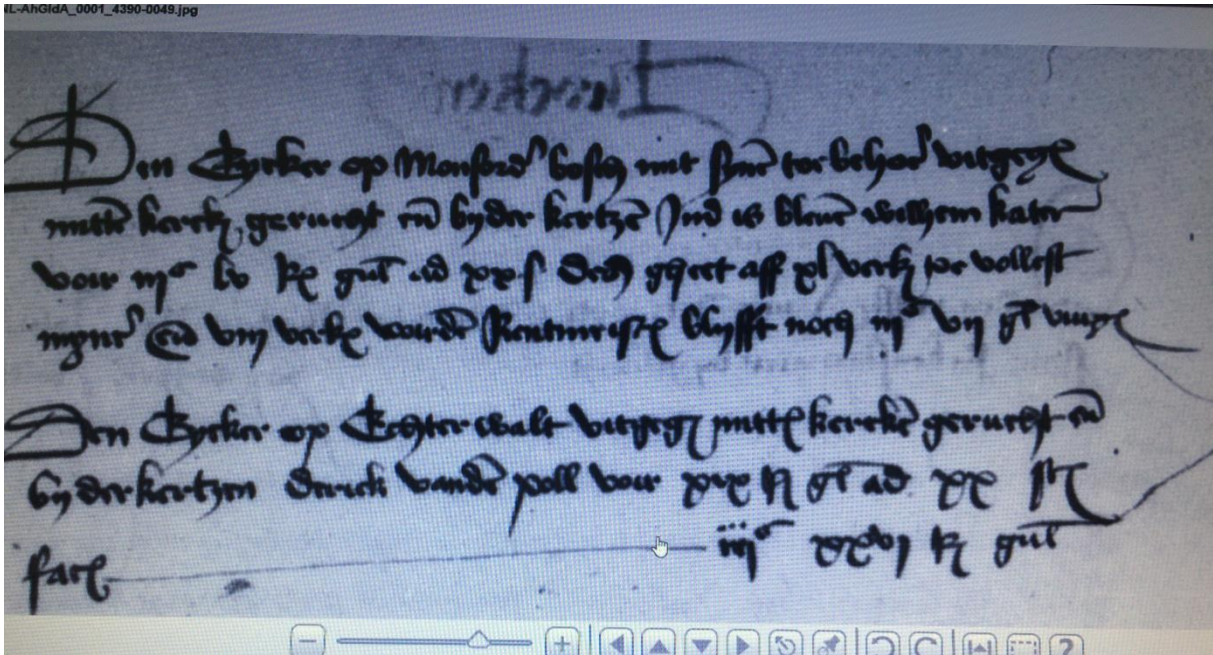 NL-AhGldA_0001_4390-0049.jpg
Den Eycker op Monford bosch mit syne toe behoer vitgege
mitte kerck geruecht en by der kertze Ind is bleve wilhem kater
voir iiijc lv R gul ad xx s dech gheet aff xl verk toe vollest
myns en viij verke vourde Rentmeiste blijfft noch iijc vij gl
Den Eycker op Echter walt vitgeg mitte kercke geruecht en
by der kertzen derick vande poll voir xix R gl ad xx st
fact iijc xxvj R gul